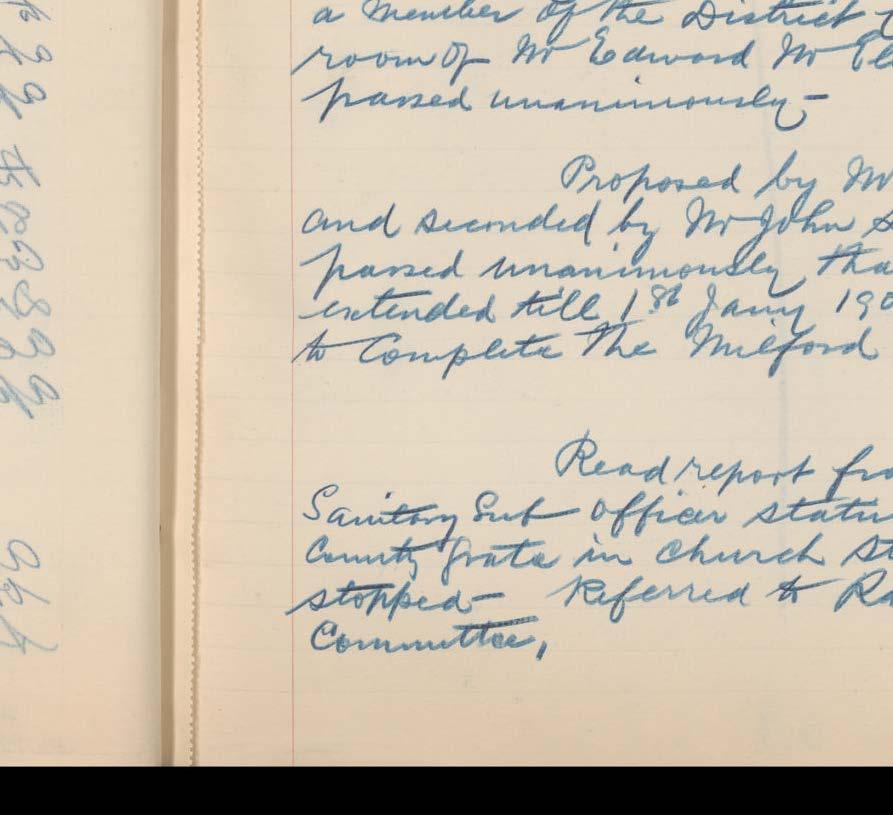 a Member of the District
room of Mr Edward Mc El
passed unanimously -
Proposed by Mr
and seconded by Mr John S
passed unanimously tha
extended till 1st Jany 190
to Complete the Milford
Read report fro
Sanitary Sub Officer statin
County Grate in Church St
stopped - Referred to Ra
Committee,